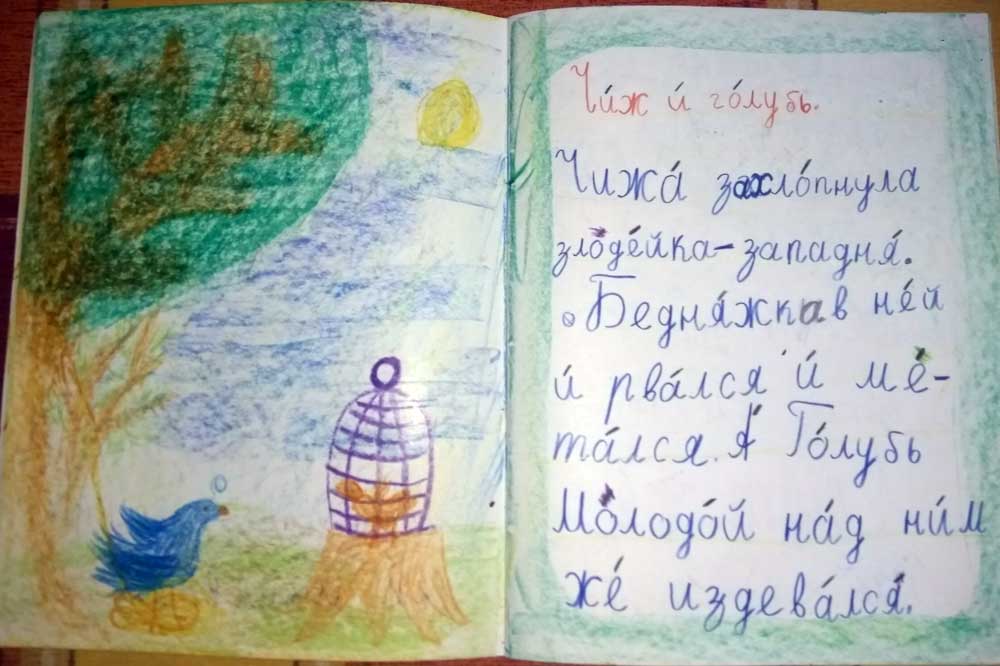 Чи́ж и́ го́лубь.
Чижа́ захло́пнула
злоде́йка-западня́.
Бедня́жка в не́й
и́ рва́лся и́ ме-
та́лся. А́ Го́лубь
Молодо́й на́д ни́м
же́ издева́лся́.